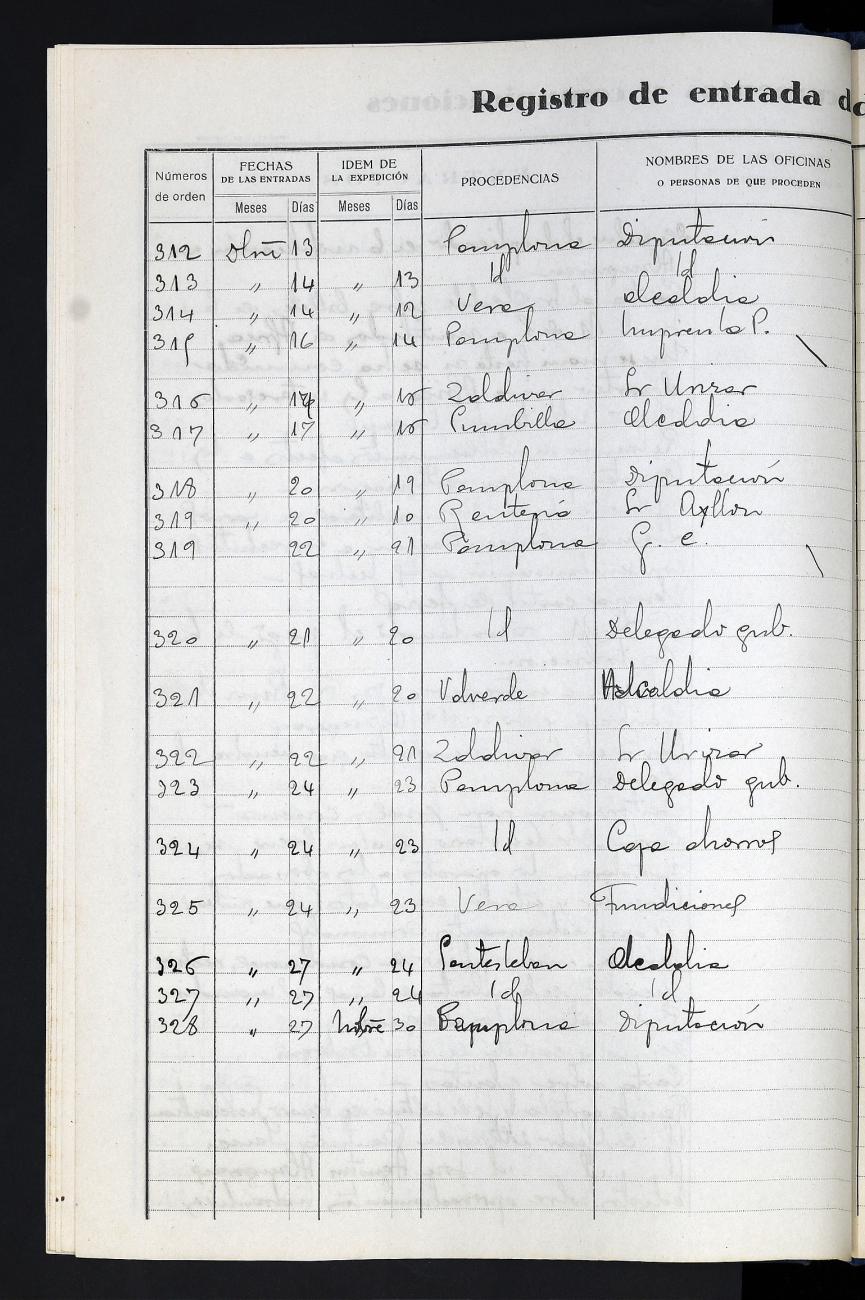 Registro de entrada d
Números de orden FECHAS DE LAS ENTRADAS IDEM DE LA EXPEDICIÓN PROCEDENCIAS NOMBRES DE LAS OFICINAS O PERSONAS DE QUE PROCEDEN
Meses Días Meses Días
312 Dbre 13 Pamplona Diputación
313 " 14 " 13 Id Id
314 " 14 " 12 Vera Alcaldia
315 " 16 " 14 Pamplona Imprenta P.
316 " 17 " 15 Zaldivar Sr Urizar
317 " 17 " 15 Sumbilla Alcaldia
318 " 20 " 19 Pamplona Diputación
319 " 20 " 10 Renteria Sr Ayllon
319 22 " 21 Pamplona G. C.
320 " 21 " 20 Id Delegado gub.
321 " 22 " 20 Valverde Alcaldia
322 " 22 " 21 Zaldivar Sr Urizar
323 " 24 " 23 Pamplona Delegado gub.
324 " 24 " 23 Id Caja ahorros
325 " 24 " 23 Vera Fundiciones
326 " 27 " 24 Santesteban Alcaldia
327 " 27 " 24 Id Id
328 " 27 Nobre 30 Pamplona Diputación